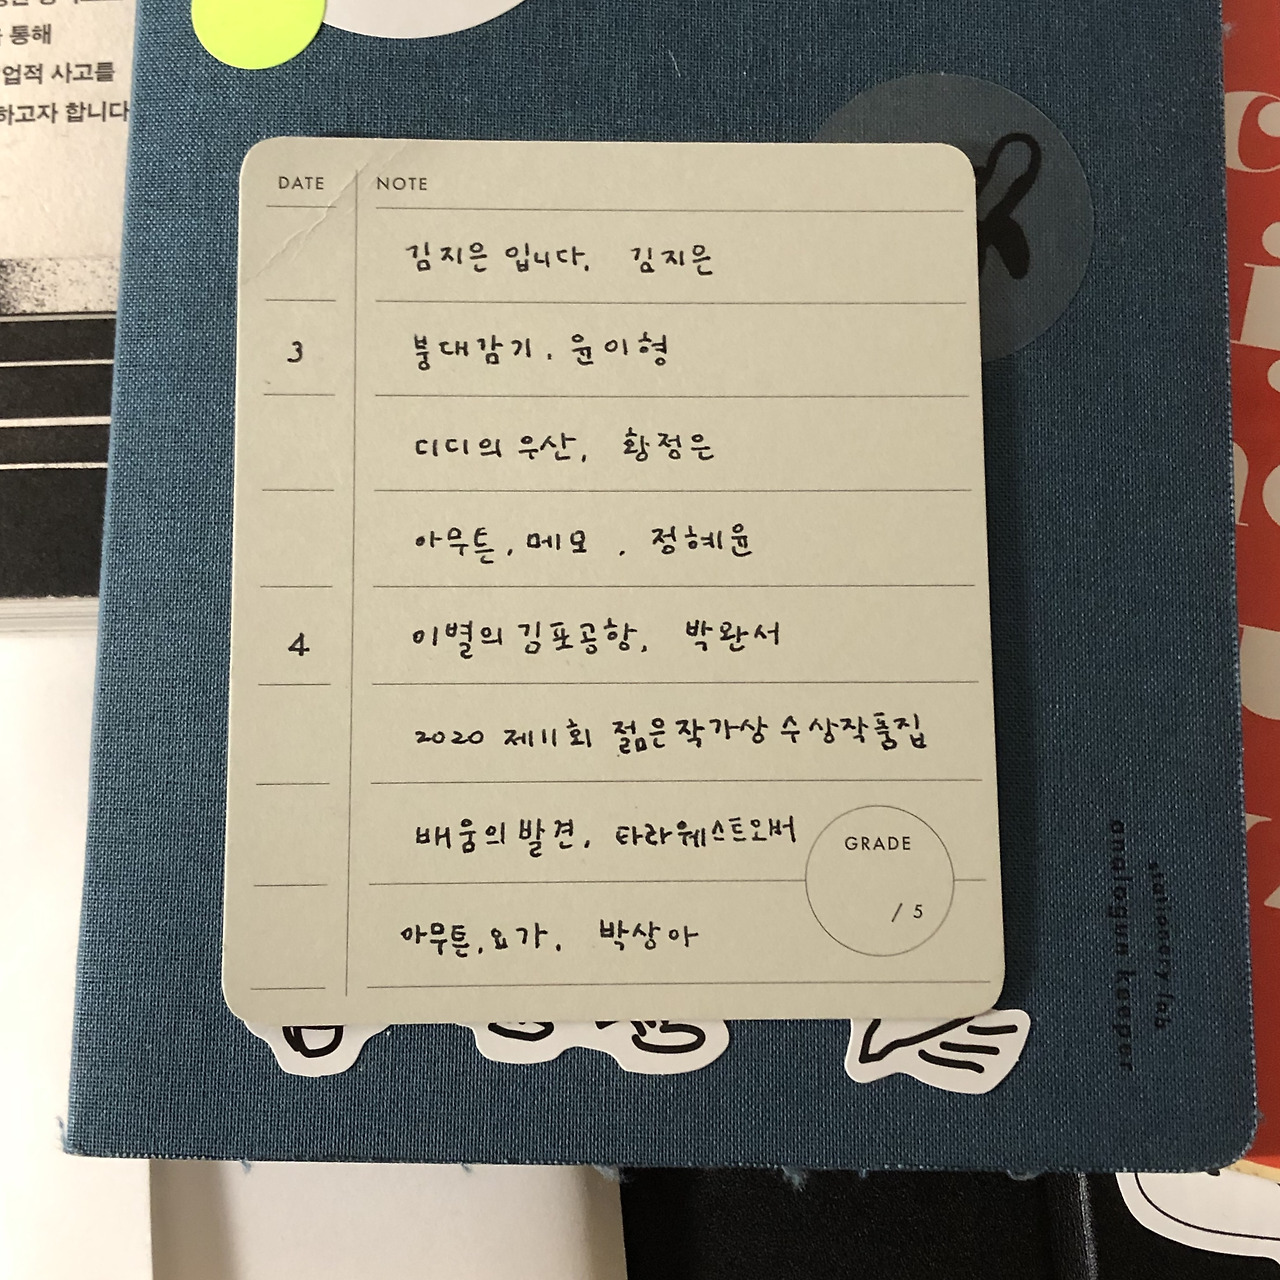 통해
업적 사고를
하고자 합니다
DATE NOTE
김지은 입니다, 김지은
3 붕대감기, 윤이형
디디의 우산, 황정은
아무튼, 메모, 정혜윤
4 이별의 김포공항, 박완서
2020 제11회 젊은작가상 수상작품집
배움의 발견, 타라웨스트오버
GRADE
/ 5
아무튼, 요가, 박상아
stationery lab
analogue keeper